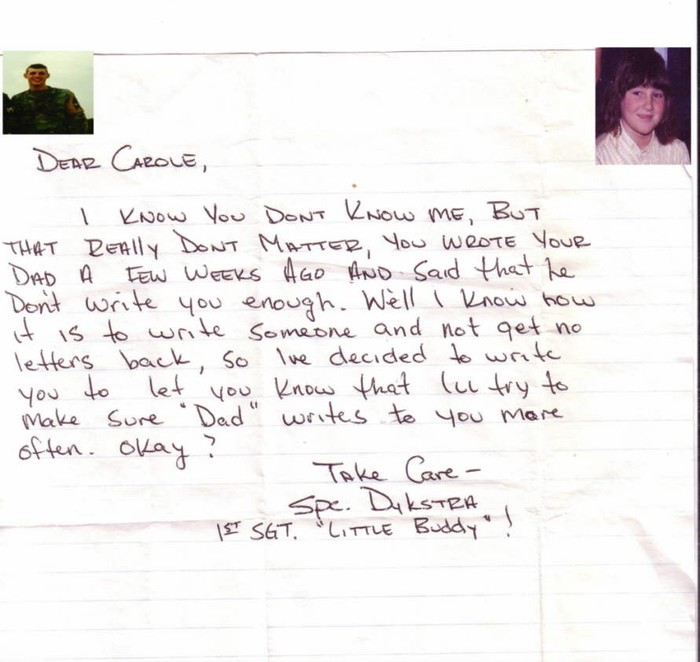 DEAR CAROLE,
I KNOW YOU DONT KNOW ME, BUT
THAT REALLY DONT MATTER, YOU WROTE YOUR
DAD A FEW WEEKS AGO AND Said that he
Don't write you enough. Well I know how
it is to write someone and not get no
letters back, so I've decided to write
you to let you know that I'll try to
make sure "Dad" writes to you more
often. okay?
Take Care -
Spc. DYKSTRA
1ST SGT. "LITTLE Buddy"!